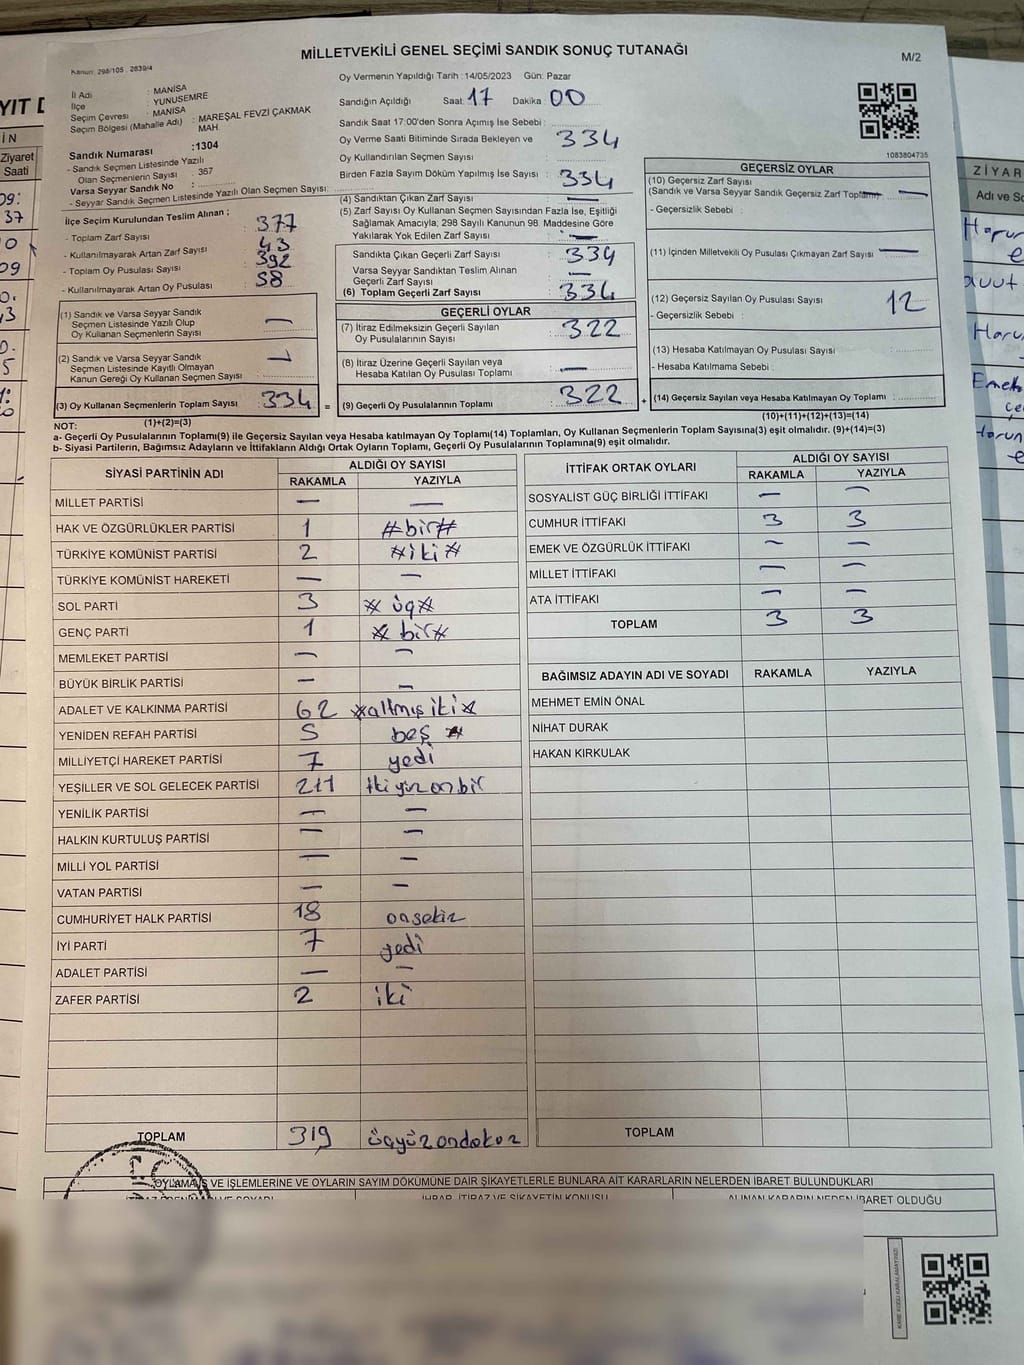 MİLLETVEKİLİ GENEL SEÇİMİ SANDIK SONUÇ TUTANAĞI
M/2
Kanun: 298/105, 2839/4
İl Adı : MANİSA
İlçe : YUNUSEMRE
Seçim Çevresi : MANİSA
Seçim Bölgesi (Mahalle Adı) : MAREŞAL FEVZİ ÇAKMAK MAH.
Sandık Numarası :1304
- Sandık Seçmen Listesinde Yazılı
Olan Seçmenlerin Sayısı : 367
Varsa Seyyar Sandık No :
- Seyyar Sandık Seçmen Listesinde Yazılı Olan Seçmen Sayısı:
Oy Vermenin Yapıldığı Tarih : 14/05/2023 Gün: Pazar
Sandığın Açıldığı Saat: 17 Dakika: 00
Sandık Saat 17:00'den Sonra Açılmış İse Sebebi :
Oy Verme Saati Bitiminde Sırada Bekleyen ve 334
Oy Kullandırılan Seçmen Sayısı
Birden Fazla Sayım Döküm Yapılmış İse Sayısı : 334
İlçe Seçim Kurulundan Teslim Alınan ;
- Toplam Zarf Sayısı 377
- Kullanılmayarak Artan Zarf Sayısı : 43
- Toplam Oy Pusulası Sayısı 392
- Kullanılmayarak Artan Oy Pusulası : 58
(1) Sandık ve Varsa Seyyar Sandık
Seçmen Listesinde Yazılı Olup
Oy Kullanan Seçmenlerin Sayısı —
(2) Sandık ve Varsa Seyyar Sandık
Seçmen Listesinde Kayıtlı Olmayan
Kanun Gereği Oy Kullanan Seçmen Sayısı : —
(3) Oy Kullanan Seçmenlerin Toplam Sayısı 334 =
(1)+(2)=(3)
(4) Sandıktan Çıkan Zarf Sayısı : —
(5) Zarf Sayısı Oy Kullanan Seçmen Sayısından Fazla İse, Eşitliği
Sağlamak Amacıyla, 298 Sayılı Kanunun 98. Maddesine Göre
Yakılarak Yok Edilen Zarf Sayısı : —
Sandıkta Çıkan Geçerli Zarf Sayısı 334
Varsa Seyyar Sandıktan Teslim Alınan
Geçerli Zarf Sayısı : —
(6) Toplam Geçerli Zarf Sayısı : 334
GEÇERLİ OYLAR
(7) İtiraz Edilmeksizin Geçerli Sayılan
Oy Pusulalarının Sayısı : 322
(8) İtiraz Üzerine Geçerli Sayılan veya
Hesaba Katılan Oy Pusulası Toplamı : —
(9) Geçerli Oy Pusulalarının Toplamı : 322 +
1083804735
GEÇERSİZ OYLAR
(10) Geçersiz Zarf Sayısı
(Sandık ve Varsa Seyyar Sandık Geçersiz Zarf Toplamı) —
- Geçersizlik Sebebi :
(11) İçinden Milletvekili Oy Pusulası Çıkmayan Zarf Sayısı : —
(12) Geçersiz Sayılan Oy Pusulası Sayısı : 12
- Geçersizlik Sebebi :
(13) Hesaba Katılmayan Oy Pusulası Sayısı :
- Hesaba Katılmama Sebebi :
(14) Geçersiz Sayılan veya Hesaba Katılmayan Oy Toplamı :
(10)+(11)+(12)+(13)=(14)
NOT:
a- Geçerli Oy Pusulalarının Toplamı(9) ile Geçersiz Sayılan veya Hesaba katılmayan Oy Toplamı(14) Toplamları, Oy Kullanan Seçmenlerin Toplam Sayısına(3) eşit olmalıdır. (9)+(14)=(3)
b- Siyasi Partilerin, Bağımsız Adayların ve İttifakların Aldığı Ortak Oyların Toplamı, Geçerli Oy Pusulalarının Toplamına(9) eşit olmalıdır.
SİYASİ PARTİNİN ADI ALDIĞI OY SAYISI
RAKAMLA YAZIYLA
MİLLET PARTİSİ — —
HAK VE ÖZGÜRLÜKLER PARTİSİ 1 #bir#
TÜRKİYE KOMÜNİST PARTİSİ 2 #iki#
TÜRKİYE KOMÜNİST HAREKETİ — —
SOL PARTİ 3 # üç#
GENÇ PARTİ 1 # bir#
MEMLEKET PARTİSİ — —
BÜYÜK BİRLİK PARTİSİ — —
ADALET VE KALKINMA PARTİSİ 62 #altmış iki#
YENİDEN REFAH PARTİSİ 5 beş #
MİLLİYETÇİ HAREKET PARTİSİ 7 yedi
YEŞİLLER VE SOL GELECEK PARTİSİ 211 İki yüz on bir
YENİLİK PARTİSİ — —
HALKIN KURTULUŞ PARTİSİ — —
MİLLİ YOL PARTİSİ — —
VATAN PARTİSİ — —
CUMHURİYET HALK PARTİSİ 18 onsekiz
İYİ PARTİ 7 yedi
ADALET PARTİSİ — —
ZAFER PARTİSİ 2 iki
TOPLAM 319 üçyüzondokuz
İTTİFAK ORTAK OYLARI ALDIĞI OY SAYISI
RAKAMLA YAZIYLA
SOSYALİST GÜÇ BİRLİĞİ İTTİFAKI — —
CUMHUR İTTİFAKI 3 3
EMEK VE ÖZGÜRLÜK İTTİFAKI — —
MİLLET İTTİFAKI — —
ATA İTTİFAKI — —
TOPLAM 3 3
BAĞIMSIZ ADAYIN ADI VE SOYADI RAKAMLA YAZIYLA
MEHMET EMİN ÖNAL
NİHAT DURAK
HAKAN KIRKULAK
TOPLAM
OYLAMA İŞ VE İŞLEMLERİNE VE OYLARIN SAYIM DÖKÜMÜNE DAİR ŞİKAYETLERLE BUNLARA AİT KARARLARIN NELERDEN İBARET BULUNDUKLARI
İHBAR, İTİRAZ VE ŞİKAYETİN KONUSU ALINAN KARARIN NEDEN İBARET OLDUĞU
KARE KODU KARALAMAYINIZ!
YIT D
İN
Ziyaret
Saati
09:
37
09
ZİYAR
Adı ve So
Harun
Harun
Emek
Harun